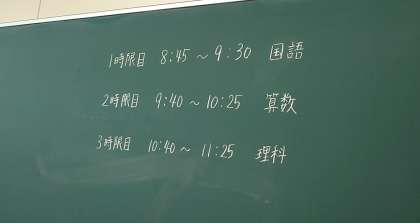 1時限目 8:45 〜 9:30 国語
2時限目 9:40 〜 10:25 算数
3時限目 10:40 〜 11:25 理科